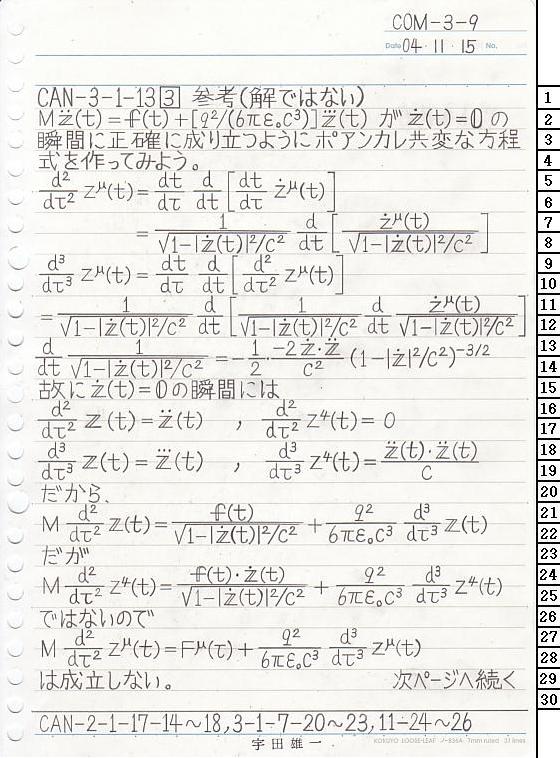 COM-3-9
Date 04・11・15 No.
CAN-3-1-13[3] 参考(解ではない)
Mz̈(t)=f(t)+[q²/(6πε₀c³)]z⃛(t) が ż(t)=0 の
瞬間に正確に成り立つようにポアンカレ共変な方程
式を作ってみよう。
d²/dτ² Z^μ(t)= dt/dτ d/dt [dt/dτ ż^μ(t)]
= 1/√(1-|ż(t)|²/c²) d/dt [ż^μ(t)/√(1-|ż(t)|²/c²)]
d³/dτ³ Z^μ(t)= dt/dτ d/dt [d²/dτ² Z^μ(t)]
= 1/√(1-|ż(t)|²/c²) d/dt [1/√(1-|ż(t)|²/c²) d/dt ż^μ(t)/√(1-|ż(t)|²/c²)]
d/dt 1/√(1-|ż(t)|²/c²) = -1/2 · -2ż·z̈/c² (1-|ż|²/c²)^(-3/2)
故に ż(t)=0 の瞬間には
d²/dτ² z(t)=z̈(t) , d²/dτ² Z⁴(t)=0
d³/dτ³ z(t)=z⃛(t) , d³/dτ³ Z⁴(t)= z̈(t)·z̈(t)/c
だから、
M d²/dτ² z(t)= f(t)/√(1-|ż(t)|²/c²) + q²/6πε₀c³ d³/dτ³ z(t)
だが
M d²/dτ² Z⁴(t)= f(t)·ż(t)/√(1-|ż(t)|²/c²) + q²/6πε₀c³ d³/dτ³ Z⁴(t)
ではないので
M d²/dτ² Z^μ(t)=F^μ(τ)+ q²/6πε₀c³ d³/dτ³ Z^μ(t)
は成立しない。 次ページへ続く
CAN-2-1-17-14~18,3-1-7-20~23,11-24~26
宇田雄一
KOKUYO LOOSE-LEAF ノ-836A 7mm ruled 31 lines
1
2
3
4
5
6
7
8
9
10
11
12
13
14
15
16
17
18
19
20
21
22
23
24
25
26
27
28
29
30